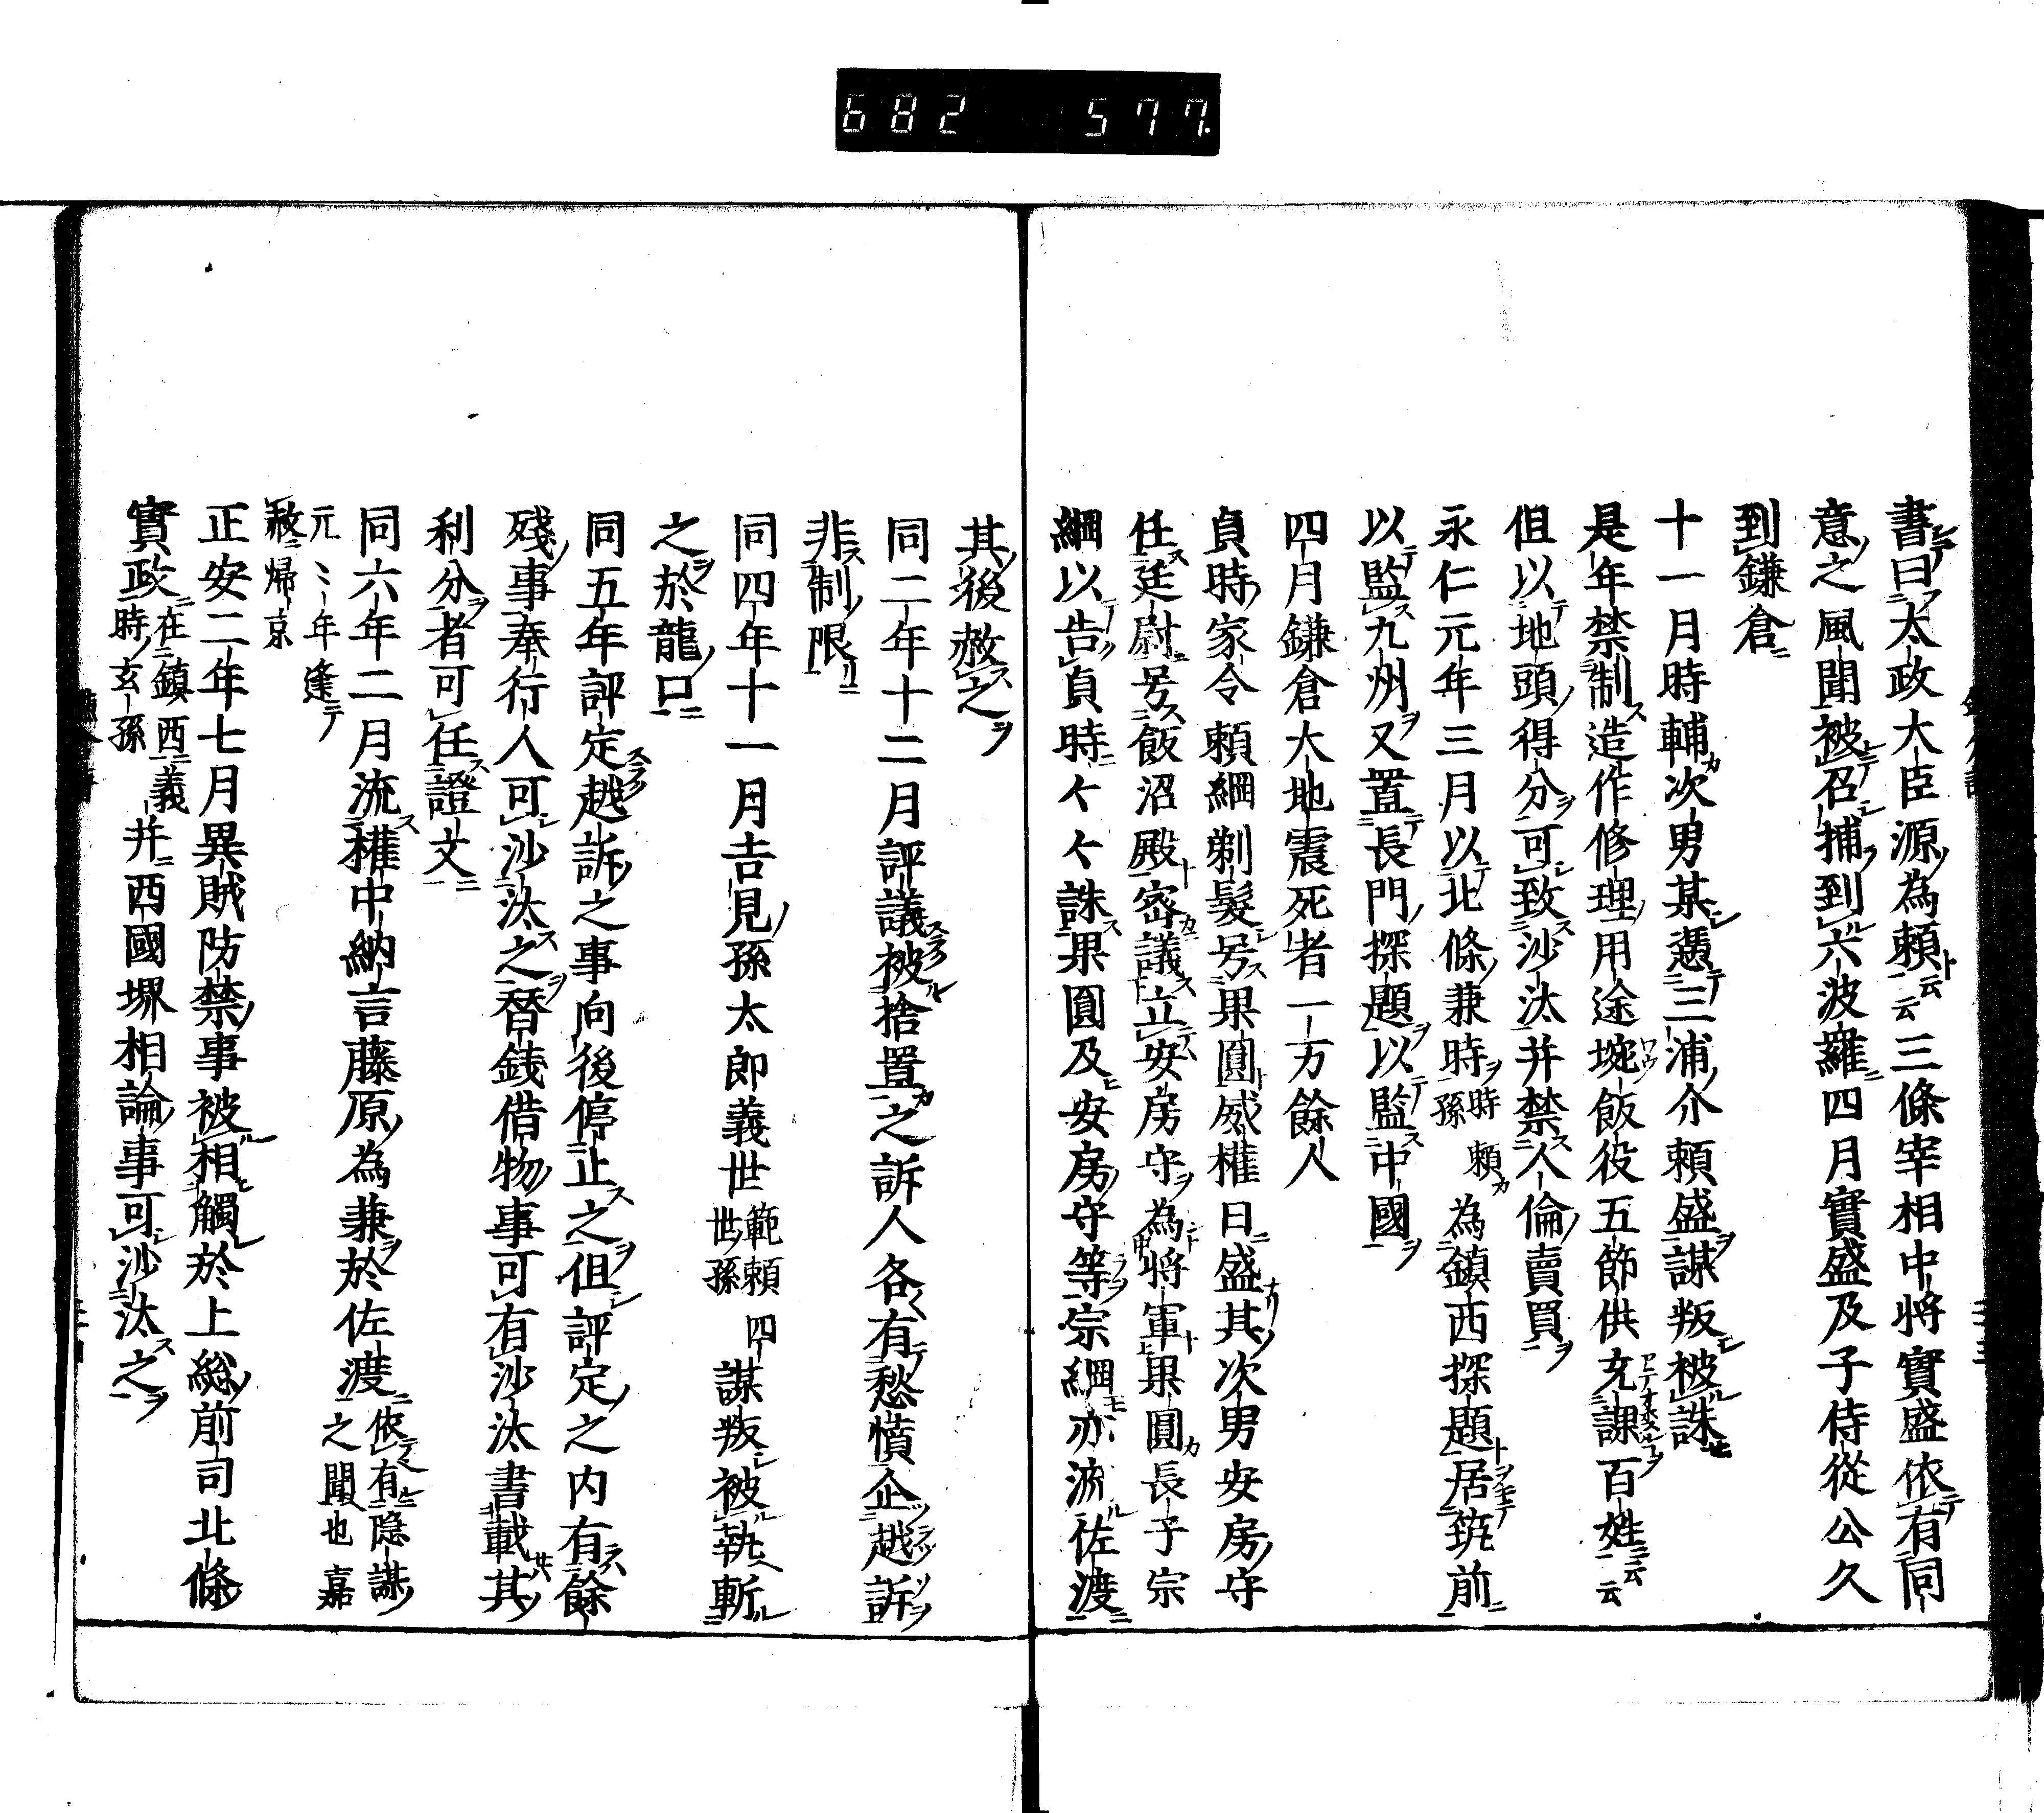 682 577.
書曰太政大臣源為頼云云三條宰相中将實盛依有同
意之風聞被召捕到六波羅四月實盛及子侍從公久
到鎌倉
十一月時輔次男某憑三浦介頼盛謀叛被誅
是年禁制造作修理用途垸飯役五節供充課百姓云云
但以地頭得分可致沙汰并禁人倫賣買
永仁元年三月以北條兼時時頼孫為鎮西探題居筑前
以監九州又置長門探題以監中國
四月鎌倉大地震死者一万餘人
貞時家令頼綱剃髮号果圓威權日盛其次男安房守
任廷尉号飯沼殿密議立安房守為将軍果圓長子宗
綱以告貞時々々誅果圓及安房守等宗綱亦流佐渡
其後赦之
同二年十二月評議被捨置之訴人各有愁憤企越訴
非制限
同四年十一月吉見孫太郎義世範頼四世孫謀叛被執斬
之於龍口
同五年評定越訴之事向後停止之但評定之内有餘
殘事奉行人可沙汰之替銭借物事可有沙汰書載其
利分者可任證文
同六年二月流權中納言藤原為兼於佐渡依有隠謀之聞也嘉
元〻年逢赦歸京
正安二年七月異賊防禁事被相觸於上総前司北條
實政在鎮西義時玄孫并西國堺相論事可沙汰之